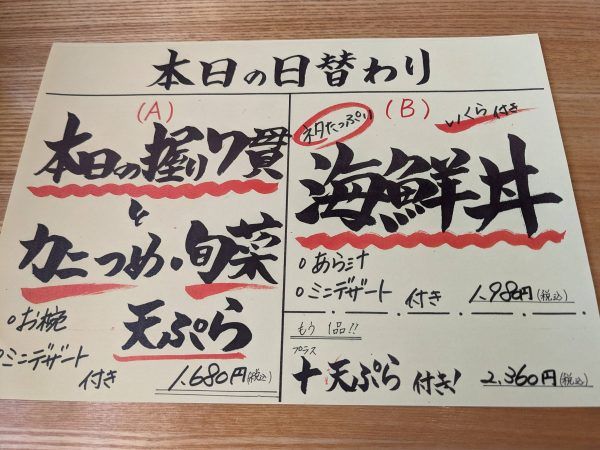 本日の日替わり
(A)
本日の握り7貫
と
カニつめ・旬菜
天ぷら
○お椀
○ミニデザート
付き
1.680円(税込)
(B)
ネタたっぷり
いくら付き
海鮮丼
○あら汁
○ミニデザート 付き 1.980円(税込)
もう1品!!
プラス
+天ぷら 付き! 2.360円(税込)